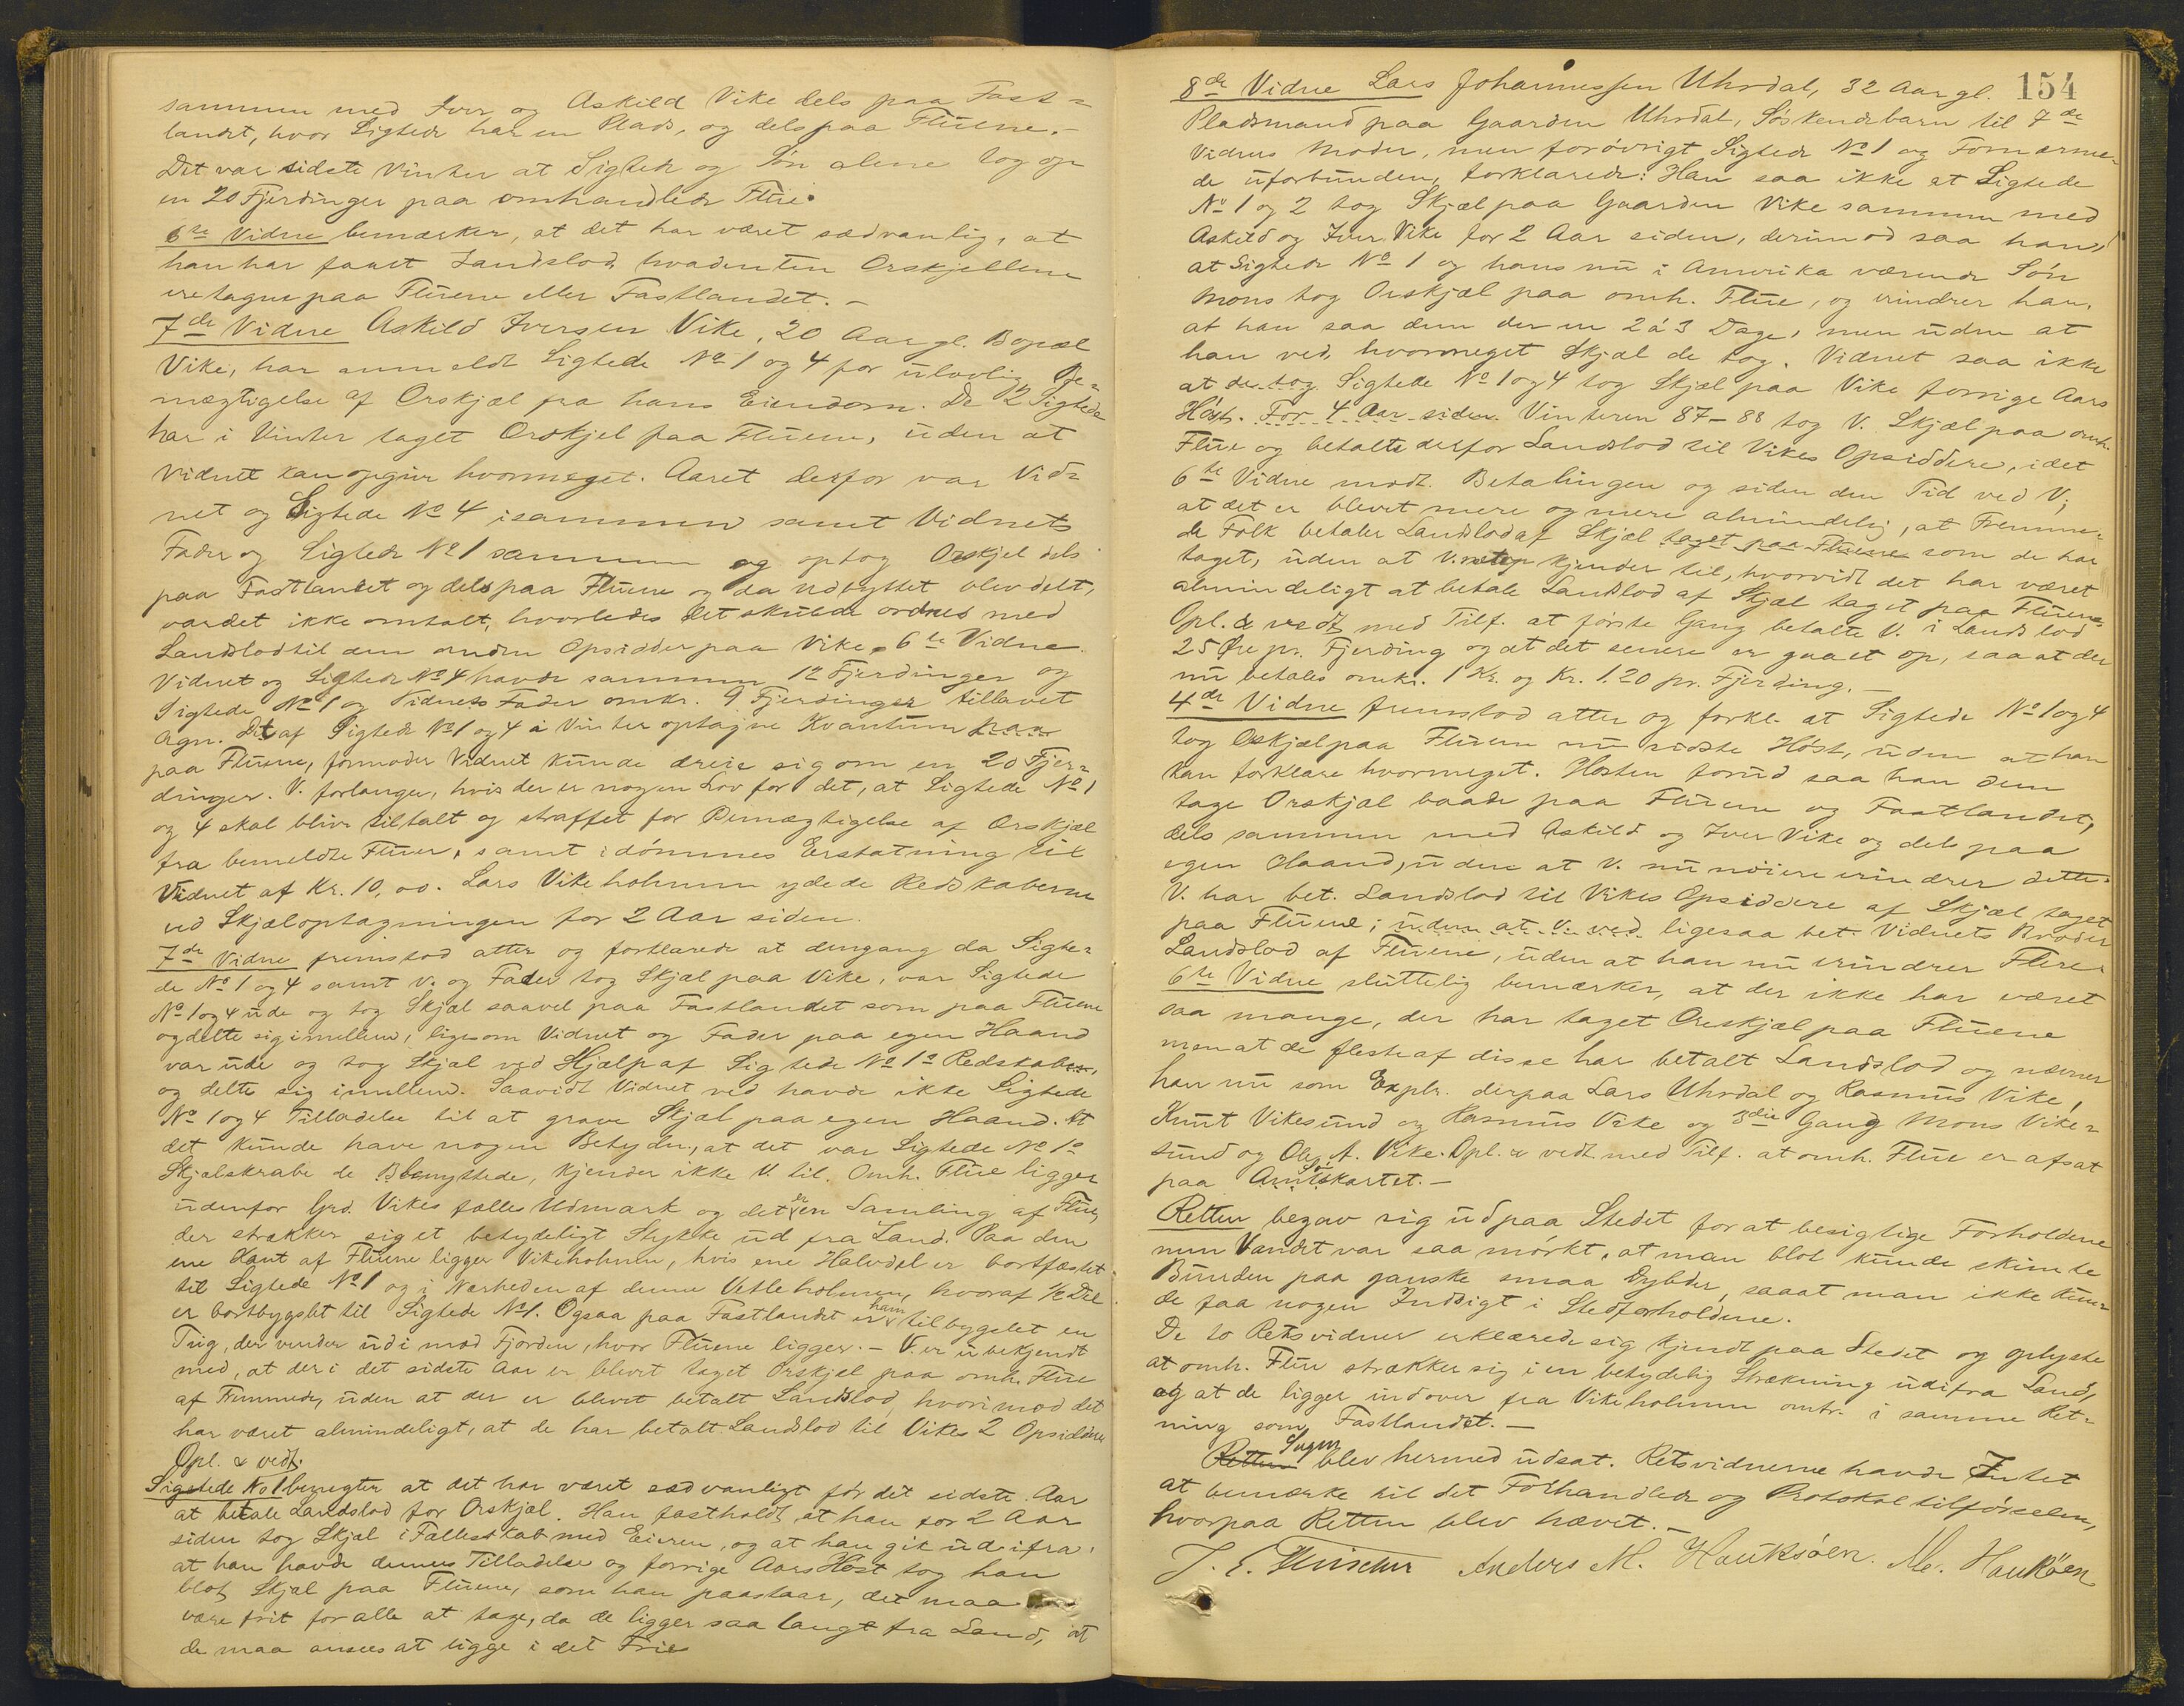 sammen med Iver og Askild Vike dels paa Fast=
landet, hvor Sigtede har en Plads, og dels paa Fluene.-
Det var sidste Vinter at Sigtede og Søn alene tog op
en 20 Fjerdinger paa omhandlede Flue.
6te Vidne bemærker, at det har været sædvanlig, at
han har faaet Landslod, hvadenten Orskjellene
ere tagne paa Fluene eller Fastlandet.-
7de Vidne Askild Iversen Vike, 20 Aar gl. Bopæl
Vike, har anmeldt Sigtede No 1 og 4 for ulovlig Be=
mægtigelse af Orskjæl fra hans Eiendom. De 2 Sigtede
har i Vinter taget Orskjel paa Fluene, uden at
Vidnet kan opgive hvormeget. Aaret derfor var Vid=
net og Sigtede No 4 isammen samt Vidnets
Fader og Sigtede No 1 sammen og optog Orskjel dels
paa Fastlandet og dels paa Fluene og da udbyttet blev delt,
var det ikke omtalt, hvorledes det skulde ordnes med
Landslod til den anden Opsidder paa Vike, 6te Vidne.
Vidnet og Sigtede No 4 havde sammen 12 Fjerdinger og
Sigtede No 1 og Vidnets Fader omkr. 9 Fjerdinger tillavet
Agn. Det af Sigtede No 1 og 4 i Vinter optagne Kvantum paa
paa Fluene, formoder Vidnet kunde dreie sig om en 20 Fjer=
dinger. V. forlanger, hvis der er nogen Lov for det, at Sigtede No 1
og 4 skal blive tiltalt og straffet for Bemægtigelse af Orskjæl
fra bemeldte Fluer, samt idømmes Erstatning til
Vidnet af Kr. 10,00. Lars Vikeholmen ydede Redskaberne
ved Skjæloptagningen for 2 Aar siden.
7de Vidne fremstod atter og forklarede at dengang da Sigte=
de No 1 og 4 samt V. og Fader tog Skjæl paa Vike, var Sigtede
No 1 og 4 ude og tog Skjæl saavel paa Fastlandet som paa Fluene
og delte sig imellem, ligesom Vidnet og Fader paa egen Haand
var ude og tog Skjæl ved Hjælp af Sigtede No 1s Redskaber,
og delte sig imellem. Saavidt Vidnet ved havde ikke Sigtede
No 1 og 4 Tilladelse til at grave Skjæl paa egen Haand. At
det kunde have nogen Betydn., at det var Sigtede No 1s
Skjælskrabe de Benyttede, kjender ikke V. til. Omh. Flue ligger
udenfor Grd. Vikes fælles Udmark og det er en Samling af Fluer,
der strækker sig et betydeligt Stykke ud fra Land. Paa den
ene Kant af Fluene ligger Vikeholmen, hvis ene Halvdel er bortfæstet
til Sigtede No 1 og i Nærheden af denne Vetleholmen, hvoraf ½ Del
er bortbygslet til Sigtede No 1. Ogsaa paa Fastlandet er ham tilbygslet en
Teig, der vender ud imod Fjorden, hvor Fluene ligger.- V. er ubekjendt
med, at der i det sidste Aar er blevet taget Orskjæl paa omh. Flue
af Fremmede, uden at der er blevet betalt Landslod, hvorimod det
har været almindeligt, at de har betalt Landslod til Vikes 2 Opsiddere
Opl. & vedt.
Sigtede No 1 benegter at det har været sædvanligt før det sidste Aar
at betale Landslod for Orskjæl. Han fastholdt at han for 2 Aar
siden tog Skjæl i Fællesskab med Eieren, og at han gik ud ifra
at han havde dennes Tilladelse og forrige Aars Høst tog han
blot Skjæl paa Fluene, som han paastaar, det maa
være frit for alle at tage, da de ligger saa langt fra Land, at
de maa ansees at ligge i det Frie
154
8de Vidne Lars Johannessen Uhrdal, 32 Aar gl.
Pladsmand paa Gaarden Uhrdal, Søskendebarn til 7de
Vidnes Moder, men forøvrigt Sigtede No 1 og Fornærme=
de uforbunden, forklarede: Han saa ikke at Sigtede
No 1 og 2 tog Skjæl paa Gaarden Vike sammen med
Askild og Iver Vike for 2 Aar siden, derimod saa han,
at Sigtede No 1 og hans nu i Amerika værende Søn
Mons tog Orskjæl paa omh. Flue, og erindrer han,
at han saa dem der en 2 á 3 Dage, men uden at
han ved, hvormeget Skjæl de tog. Vidnet saa ikke
at de tog Sigtede No 1 og 4 tog Skjæl paa Vike forrige Aars
Høst. For 4 Aar siden Vinteren 87-88 tog V. Skjæl paa omh.
Flue og betalte derfor Landslod til Vikes Opsiddere, idet
6te Vidne modt. Betalingen og siden den Tid ved V,
at det er blevet mere og mere almindelig, at Fremme=
de Folk betaler Landslod af Skjæl taget paa Fluene som de har
taget, uden at V. netop kjender til, hvorvidt det har været
almindeligt at betale Landslod af Skjæl taget paa Fluene.
Opl. & vedt. med Tilf. at første Gang betalte V. i Landslod
25 Øre pr. Fjerding og at det senere er gaaet op, saa at der
nu betales omkr. 1 Kr. og Kr. 1.20 pr. Fjerding.-
4de Vidne fremstod atter og forkl. at Sigtede No 1 og 4
tog Oskjæl paa Fluene nu sidste Høst, uden at han
kan forklare hvormeget. Høsten forud saa han dem
tage Orskjæl baade paa Fluene og Fastlandet,
dels sammen med Askild og Iver Vike og dels paa
egen Haand, uden at V. nu nøiere erindrer dette.
V. har bet. Landslod til Vikes Opsiddere af Skjæl taget
paa Fluene; uden at V. ved ligesaa bet. Vidnets Broder
Landslod af Fluene, uden at han nu erindrer Flere.
6te Vidne sluttelig bemærker, at der ikke har været
saa mange, der har taget Orskjæl paa Fluene
men at de fleste af disse har betalt Landslod og nævner
han nu som Explr. derpaa Lars Uhrdal og Rasmus Vike,
Knut Vikesund og Rasmus Vike og 3die Gang Mons Vike=
sund og Ole A. Vike. Opl. & vedt. med Tilf. at omh. Flue er afsat
paa Amtskartet.-
Retten begav sig ud paa Stedet for at besigtige Forholdene
men Vandet var saa mørkt, at man blot kunde skimte
Bunden paa ganske smaa Dybder, saaat man ikke kun=
de faa nogen Indsigt i Stedforholdene.
De to Retsvidner erklærede sig kjendt paa Stedet og oplyste
at omh. Flue strækker sig i en betydelig Strækning ud ifra Land,
og at de ligger indover fra Vikeholmen omtr. i samme Ret=
ning som Fastlandet.-
Retten Sagen blev hermed udsat. Retsvidnerne havde Intet
at bemærke til det Forhandlede og Protokoltilførselen,
hvorpaa Retten blev hævet.-
Anders M. Hauksöen. M. Hauköen